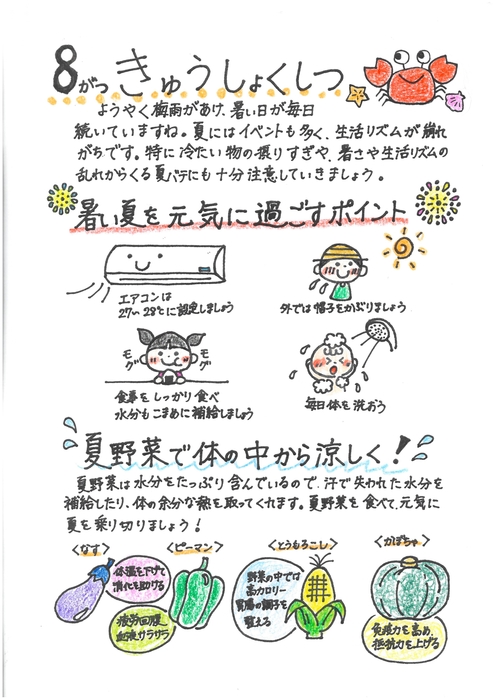 8がつ きゅうしょくしつ
ようやく梅雨があけ、暑い日が毎日
続いていますね。夏にはイベントも多く、生活リズムが崩れ
がちです。特に冷たい物の摂りすぎや、暑さや生活リズムの
乱れからくる夏バテにも十分注意していきましょう。
暑い夏を元気に過ごすポイント
エアコンは
27〜28℃に設定しましょう
外では帽子をかぶりましょう
モグ
モグ
食事をしっかり食べ
水分もこまめに補給しましょう
毎日体を洗おう
夏野菜で体の中から涼しく!
夏野菜は水分をたっぷり含んでいるので、汗で失われた水分を
補給したり、体の余分な熱を取ってくれます。夏野菜を食べて、元気に
夏を乗り切りましょう!
<なす>
体温を下げて
消化を助ける
<ピーマン>
疲労回復
血液サラサラ
<とうもろこし>
野菜の中では
高カロリー
胃腸の調子を
整える
<かぼちゃ>
免疫力を高め、
抵抗力を上げる